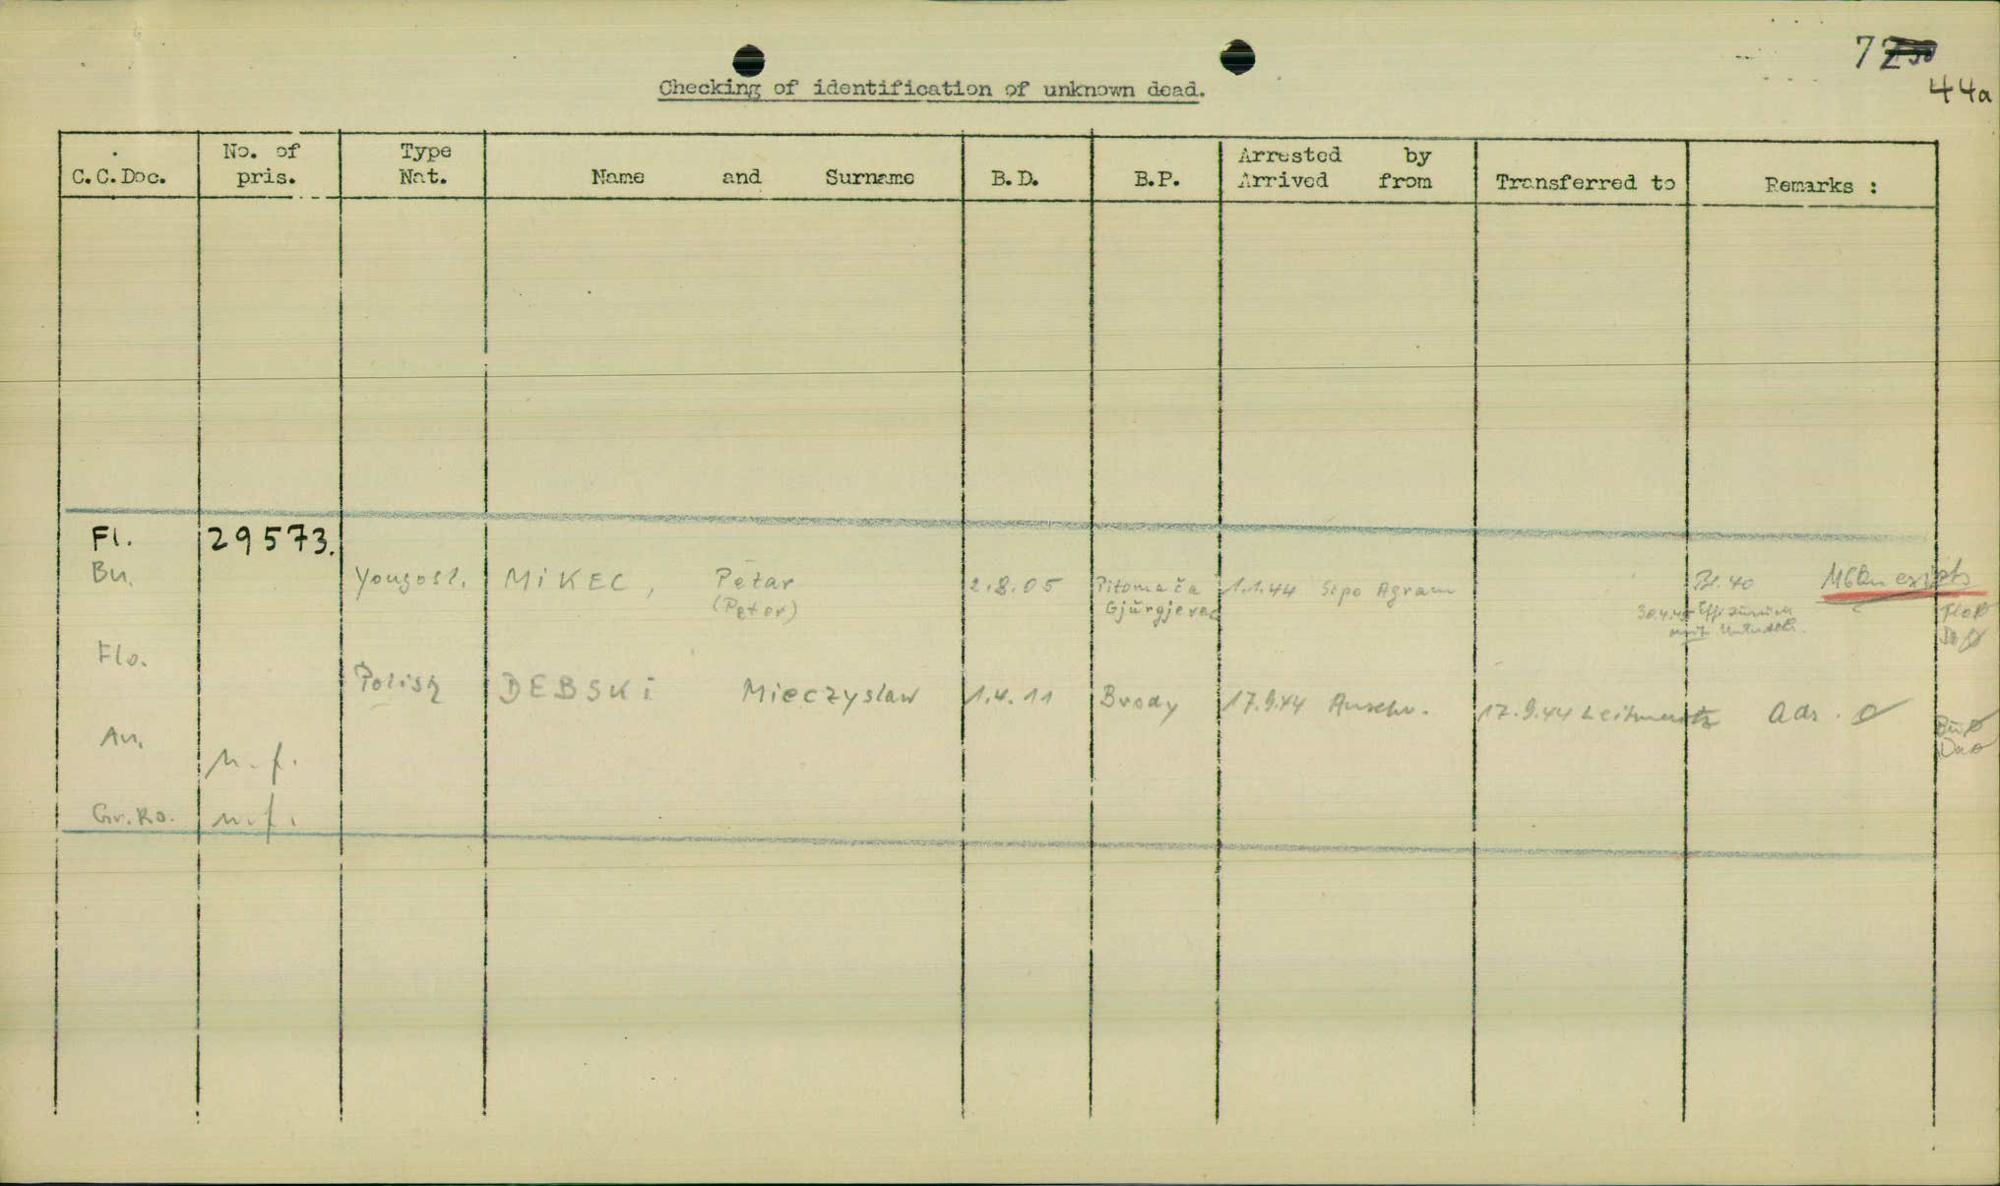 72
44a
Checking of identification of unknown dead.
C.C.Doc. No. of pris. Type Nat. Name and Surname B.D. B.P. Arrested by Arrived from Transferred to Remarks :
Fl. 29573.
Bu. Yougosl. MiKEC, Petar (Peter) 2.8.05 Pitomača Gjürgjevac 1.1.44 Sipo Agram Bl. 40
30.4.45 Eff. zurück mit
Flo.
Polish DEBSKi Mieczyslaw 1.4.11 Brody 17.9.44 Auschw. 17.9.44 Leitmeritz Adr. 0
Au. n.f.
Gr.Ro. n.f.